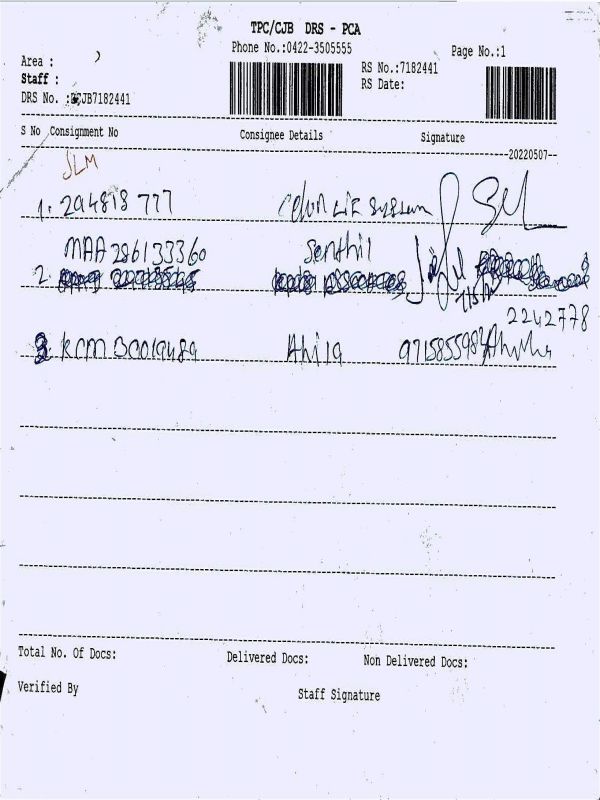 TPC/CJB DRS - PCA
Phone No.:0422-3505555
Page No.:1
Area :
Staff :
DRS No. : CJB7182441
RS No.:7182441
RS Date:
S No Consignment No Consignee Details Signature
20220507
SLM
1. 294818 777
MAA 386133360 Senthil
2.
2242778
3 KCM 30019489 Ahila
Total No. Of Docs: Delivered Docs: Non Delivered Docs:
Verified By Staff Signature